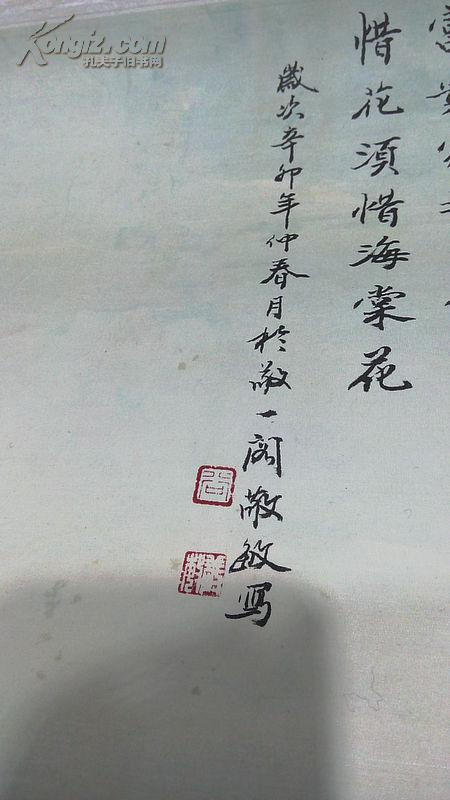 惜花須惜海棠花
歲次辛卯年仲春月於敬一阁敬敏写
Kongfz.com
孔夫子旧书网